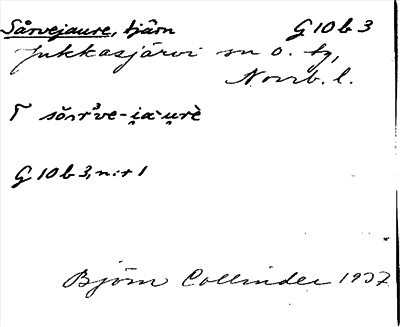 Sårvejaure, tjärn G10b3
Jukkasjärvi sn o. tg,
Norrb. l.
G10b3, n:r 1
Björn Collinder 1937